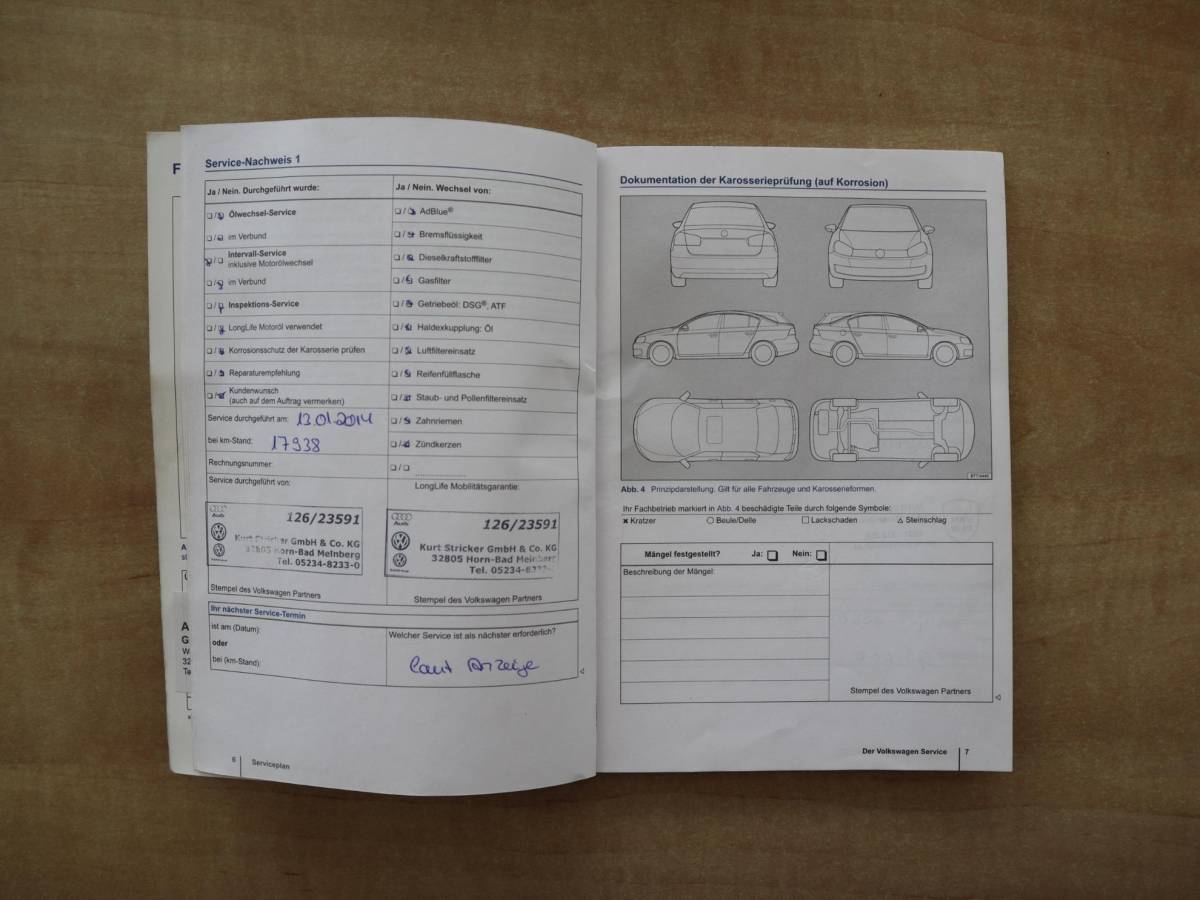 F
Service-Nachweis 1
Ja / Nein. Durchgeführt wurde:
Ja / Nein. Wechsel von:
Ölwechsel-Service
im Verbund
Intervall-Service
inklusive Motorölwechsel
im Verbund
Inspektions-Service
LongLife Motoröl verwendet
Korrosionsschutz der Karosserie prüfen
Reparaturempfehlung
Kundenwunsch
(auch auf dem Auftrag vermerken)
AdBlue®
Bremsflüssigkeit
Dieselkraftstofffilter
Gasfilter
Getriebeöl: DSG®, ATF
Haldexkupplung: Öl
Luftfiltereinsatz
Reifenfüllflasche
Staub- und Pollenfiltereinsatz
Zahnriemen
Zündkerzen
Service durchgeführt am: 13.01.2014
bei km-Stand: 17938
Rechnungsnummer:
Service durchgeführt von:
LongLife Mobilitätsgarantie:
Audi
126/23591
Kurt Stricker GmbH & Co. KG
32805 Horn-Bad Meinberg
Tel. 05234-8233-0
Stempel des Volkswagen Partners
Audi
126/23591
Kurt Stricker GmbH & Co. KG
32805 Horn-Bad Meinberg
Tel. 05234-8
Stempel des Volkswagen Partners
Ihr nächster Service-Termin
ist am (Datum):
oder
bei (km-Stand):
Welcher Service ist als nächster erforderlich?
laut Anzeige
6 Serviceplan
Dokumentation der Karosserieprüfung (auf Korrosion)
Abb. 4 Prinzipdarstellung. Gilt für alle Fahrzeuge und Karosserieformen.
Ihr Fachbetrieb markiert in Abb. 4 beschädigte Teile durch folgende Symbole:
✖ Kratzer ○ Beule/Delle □ Lackschaden △ Steinschlag
Mängel festgestellt? Ja: Nein:
Beschreibung der Mängel:
Stempel des Volkswagen Partners
Der Volkswagen Service 7